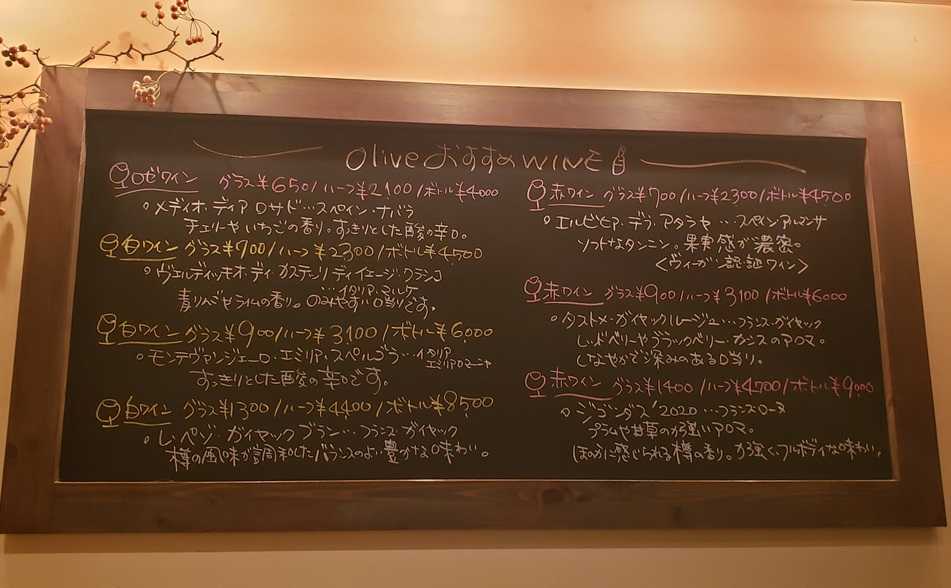 Oliveおすすめ WINE
ロゼワイン グラス¥650/ハーフ¥2100/ボトル¥4000
○メディオ・ディア ロサド…スペイン・ナバラ
チェリーやいちごの香り。すっきりとした酸の辛口。
白ワイン グラス¥700/ハーフ¥2300/ボトル¥4500
○ヴェルディッキオ・ディ・カステッリ ディ イエージ・クラシコ
…イタリア・マルケ
青りんごやライムの香り。のみやすい口当りです。
白ワイン グラス¥900/ハーフ¥3100/ボトル¥6000
○モンテヴァンジェーロ・エミリア・スペルゴラ…イタリア
エミリアロマーニャ
すっきりとした酸の辛口です。
白ワイン グラス¥1300/ハーフ¥4400/ボトル¥8500
○レ・ペゾ・ガイヤック ブラン…フランス・ガイヤック
樽の風味が調和したバランスのよい豊かな味わい。
赤ワイン グラス¥700/ハーフ¥2300/ボトル¥4500
○エルビヒア・デラ・アタラヤ…スペインアルマンサ
ソフトなタンニン。果実感が濃密。
<ヴィーガン認証ワイン>
赤ワイン グラス¥900/ハーフ¥3100/ボトル¥6000
○タストメ・ガイヤック ルージュ…フランス・ガイヤック
レッドベリーやブラックベリー・カシスのアロマ。
しなやかで深みのある口当り。
赤ワイン グラス¥1400/ハーフ¥4700/ボトル¥9000
○ジゴンダス'2020…フランスローヌ
プラムや甘草の力強いアロマ。
ほのかに感じられる樽の香り。力強く、フルボディな味わい。